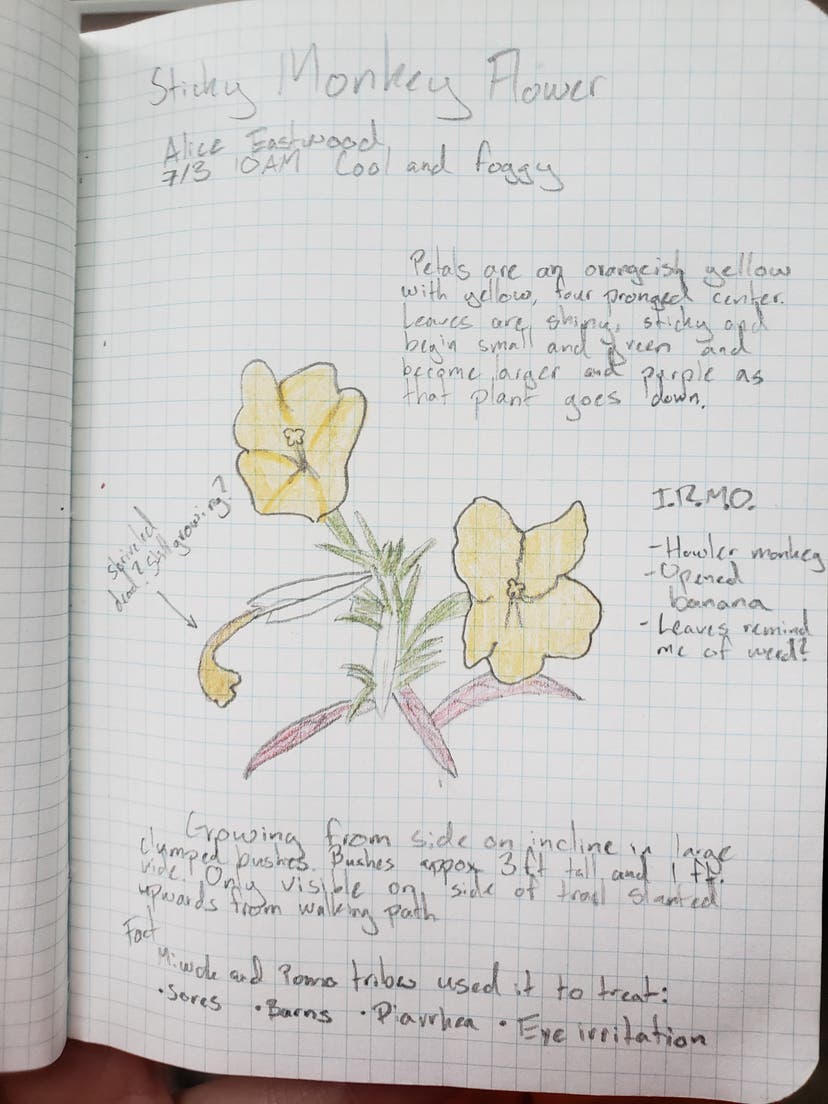 Sticky Monkey Flower
Alice Eastwood
7/3 10AM Cool and foggy
Petals are an orangeish yellow
with yellow, four pronged center.
Leaves are shiny, sticky and
begin small and green and
become larger and purple as
that plant goes down.
Shriveled
dead? Still growing?
I.R.M.O.
- Howler monkey
- Opened
banana
- Leaves remind
me of weed?
Growing from side on incline in large
clumped bushes. Bushes appox 3 ft tall and 1 ft.
wide. Only visible on side of trail slanted
upwards from walking path
Fact
Miwok and Pomo tribes used it to treat:
• Sores • Burns • Diarrhea • Eye irritation